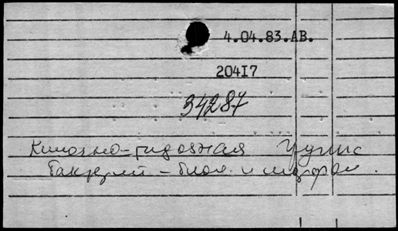 4.04.83.АВ.
20417
34287
Кишечно-тифозная группа
бактерий - биол. и